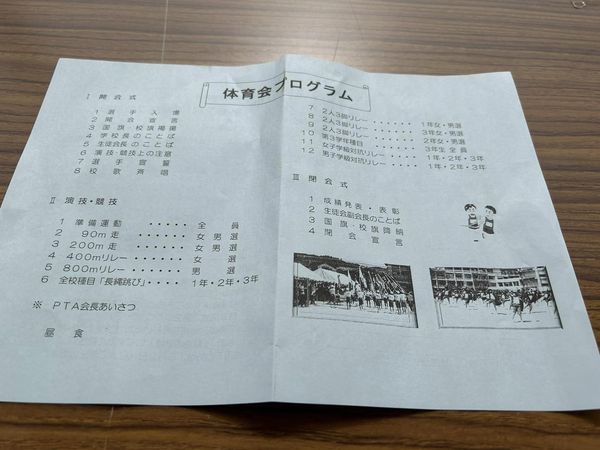 体育会プログラム
Ⅰ 開会式
1 選手入場
2 開会宣言
3 国旗・校旗掲揚
4 学校長のことば
5 生徒会長のことば
6 演技・競技上の注意
7 選手宣誓
8 校歌斉唱
Ⅱ 演技・競技
1 準備運動 ・・・・・ 全員
2 90m走 ・・・・・・ 女男選
3 200m走 ・・・・・ 女男選
4 400mリレー ・・・・・ 女選
5 800mリレー ・・・・・ 男選
6 全校種目「長縄跳び」・・・・ 1年・2年・3年
※ PTA会長あいさつ
昼食
7 2人3脚リレー ・・・・・・ 1年女・男選
8 2人3脚リレー ・・・・・・ 3年女・男選
9 2人3脚リレー ・・・・・・ 2年女・男選
10 第3学年種目 ・・・・・・ 3年生全員
11 女子学級対抗リレー ・・・・ 1年・2年・3年
12 男子学級対抗リレー ・・・・ 1年・2年・3年
Ⅲ 閉会式
1 成績発表・表彰
2 生徒会副会長のことば
3 国旗・校旗降納
4 閉会宣言